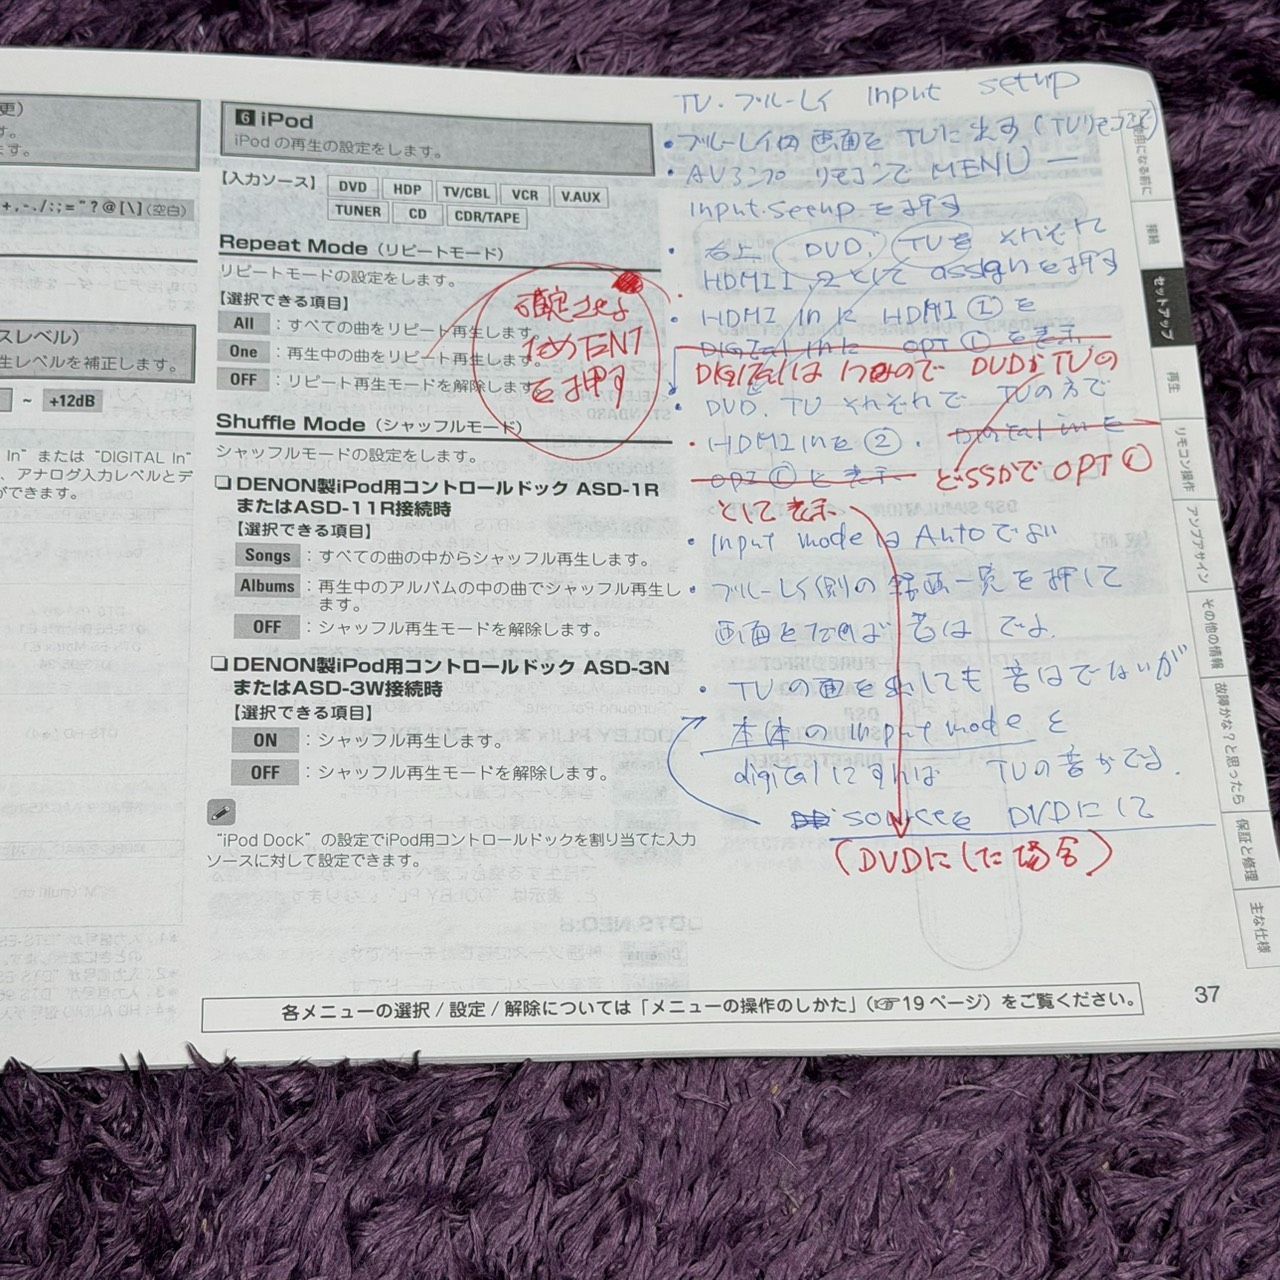 更)
す。
ます。
+,-./:;=˜?@[\](空白)
スレベル)
生レベルを補正します。
~ +12dB
In" または "DIGITAL In"
、アナログ入力レベルとデ
ができます。
6 iPod
iPod の再生の設定をします。
【入力ソース】 DVD HDP TV/CBL VCR V.AUX
TUNER CD CDR/TAPE
Repeat Mode(リピートモード)
リピートモードの設定をします。
【選択できる項目】
All :すべての曲をリピート再生します。
One :再生中の曲をリピート再生します。
OFF :リピート再生モードを解除します。
Shuffle Mode(シャッフルモード)
シャッフルモードの設定をします。
❏ DENON製iPod用コントロールドック ASD-1R
またはASD-11R接続時
【選択できる項目】
Songs :すべての曲の中からシャッフル再生します。
Albums :再生中のアルバムの中の曲でシャッフル再生し
ます。
OFF :シャッフル再生モードを解除します。
❏ DENON製iPod用コントロールドック ASD-3N
またはASD-3W接続時
【選択できる項目】
ON :シャッフル再生します。
OFF :シャッフル再生モードを解除します。
"iPod Dock"の設定でiPod用コントロールドックを割り当てた入力
ソースに対して設定できます。
確定させる
ためENT
を押す
TV・ブルーレイ Input setup
・ブルーレイの画面をTVに出す(TVリモコンで)
・AVアンプ リモコンでMENU ー
Input.setupを押す
・右上 DVD, TVを それぞれ
HDMI1, 2として assignを押す
・HDMI Inに HDMI ①を
Digital Inに OPT ①を表示
Digitalは1つなので DVDかTVの
・DVD, TV それぞれで TVの方で
・HDMI Inを ②. Digital inを
OPT ①と表示 どちらかでOPT ①
として表示
・Input modeはAutoでよい
・ブルーレイ側の録画一覧を押して
画面をだせば 音は でる.
・TVの画を出しても音はでないが
本体の Input modeを
digitalにすれば TVの音がでる.
sourceを DVDにして
(DVDにした場合)
ご使用になる前に
接続
セットアップ
再生
リモコン操作
アンプアサイン
その他の情報
故障かな?と思ったら
保証と修理
主な仕様
各メニューの選択 / 設定 / 解除については「メニューの操作のしかた」(☞19 ページ)をご覧ください。
37